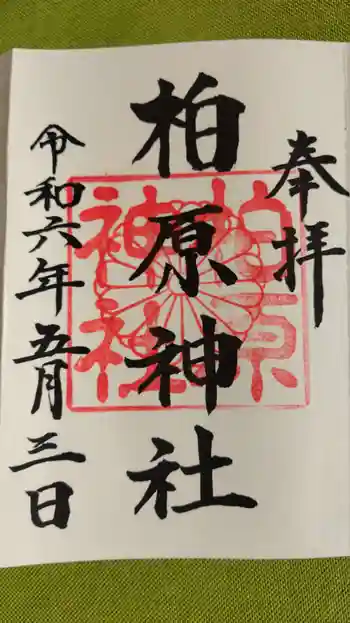 奉拝
柏原神社
柏原
神社
令和六年五月三日